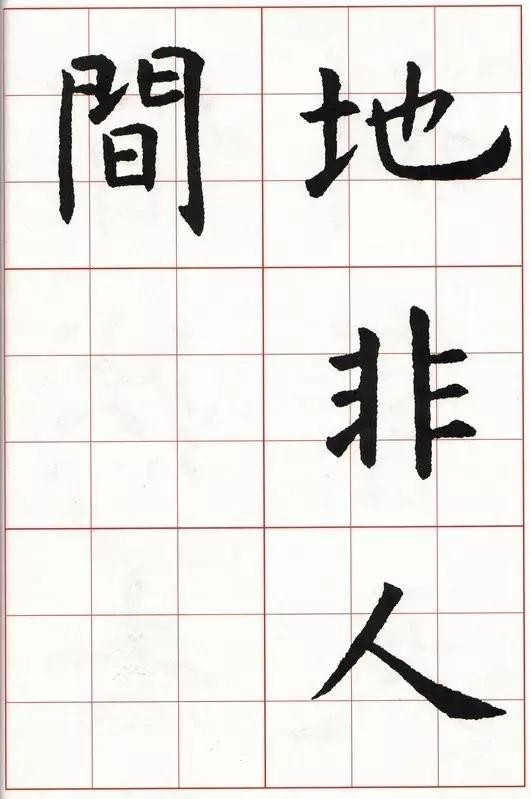 地非人
間